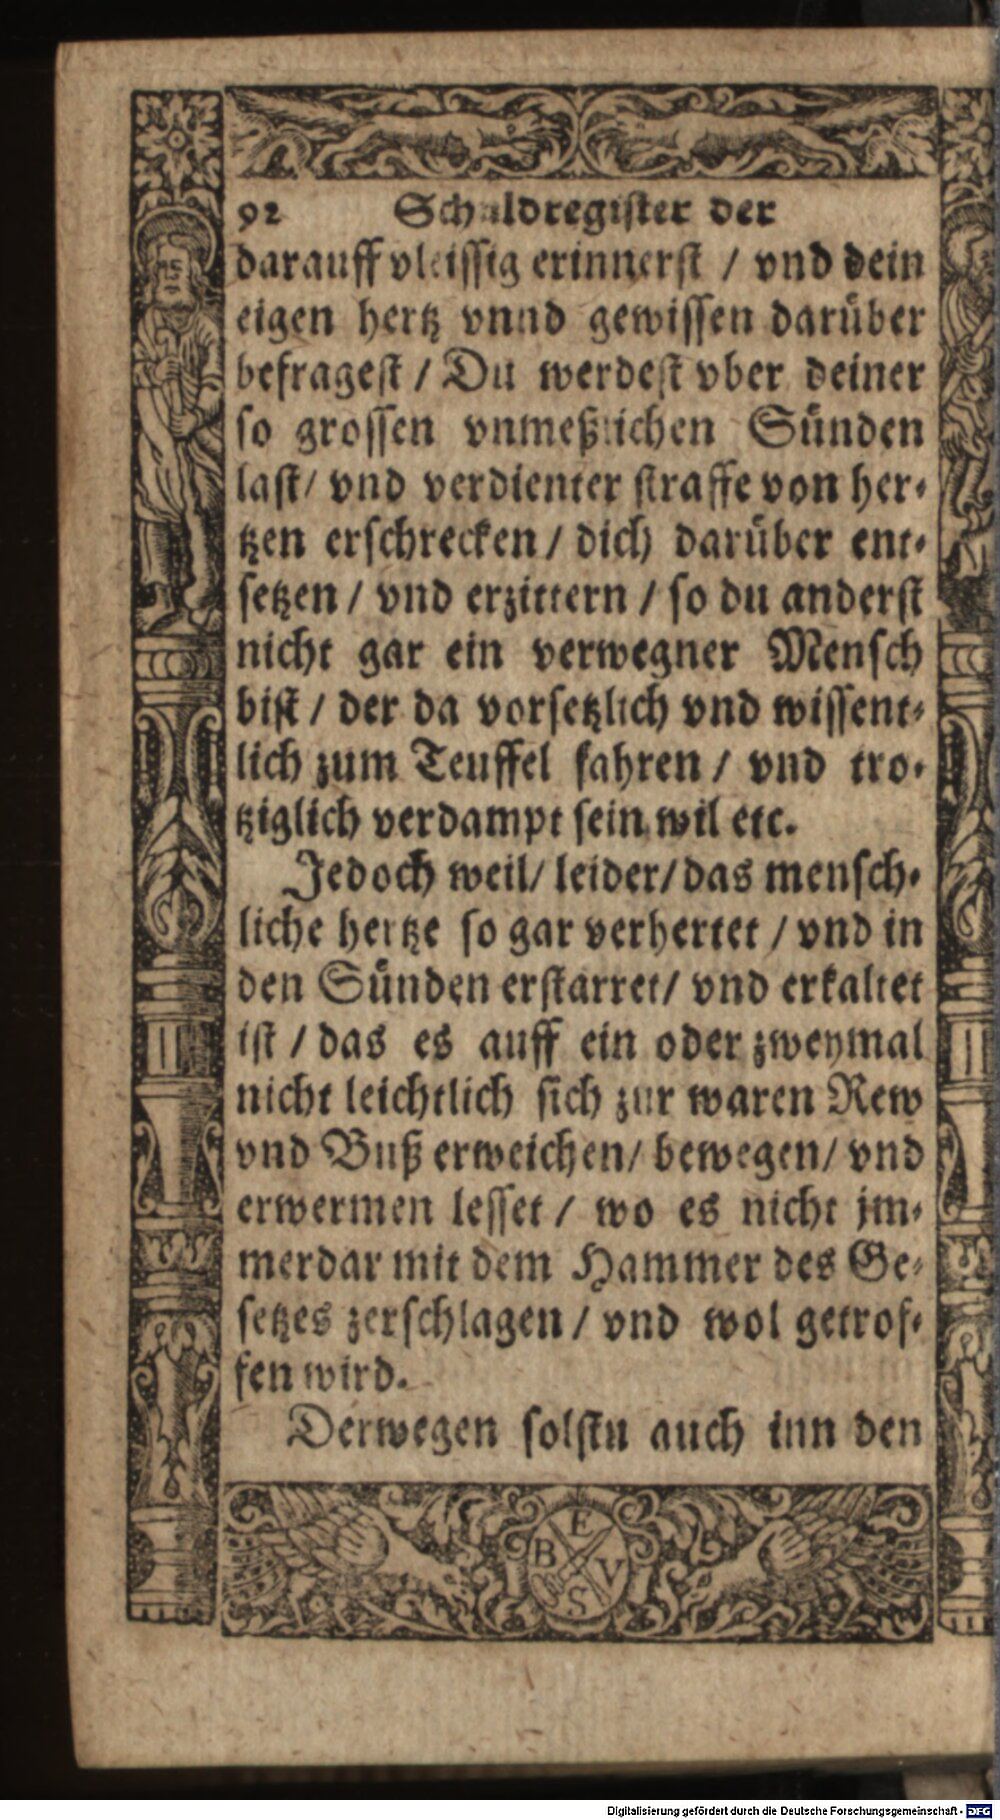 92 Schuldregister der
darauff vleissig erinnerst / vnd dein
eigen hertz vnnd gewissen darüber
befragest / Du werdest vber deiner
so grossen vnmeßlichen Sünden
last / vnd verdienter straffe von her-
tzen erschrecken / dich darüber ent-
setzen / vnd erzittern / so du anderst
nicht gar ein verwegner Mensch
bist / der da vorsetzlich vnd wissent-
lich zum Teuffel fahren / vnd tro-
tziglich verdampt sein wil etc.
Jedoch weil / leider / das mensch-
liche hertze so gar verhertet / vnd in
den Sünden erstarret / vnd erkaltet
ist / das es auff ein oder zweymal
nicht leichtlich sich zur waren Rew
vnd Buß erweichen / bewegen / vnd
erwermen lesset / wo es nicht jm-
merdar mit dem Hammer des Ge-
setzes zerschlagen / vnd wol getrof-
fen wird.
Derwegen solstu auch inn den
E
B V
S
Digitalisierung gefördert durch die Deutsche Forschungsgemeinschaft - DFG